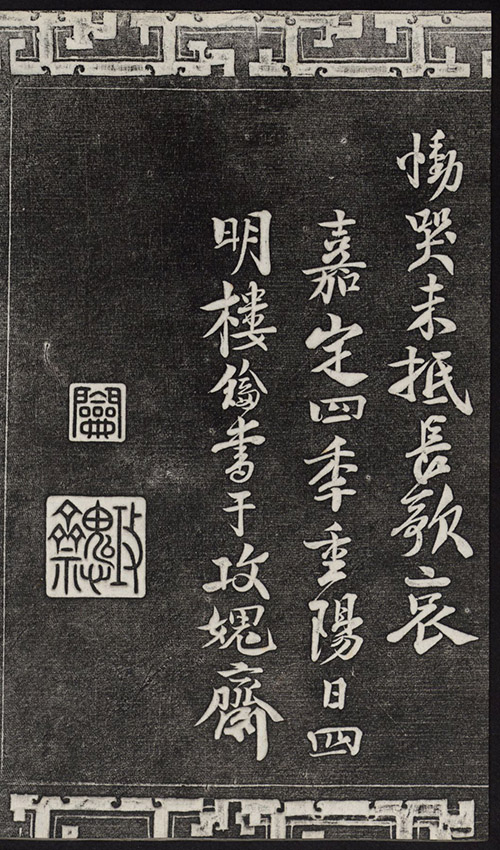 慟哭未抵長歌哀
嘉定四年重陽日四
明樓鑰書于攻媿齋
攻媿齋